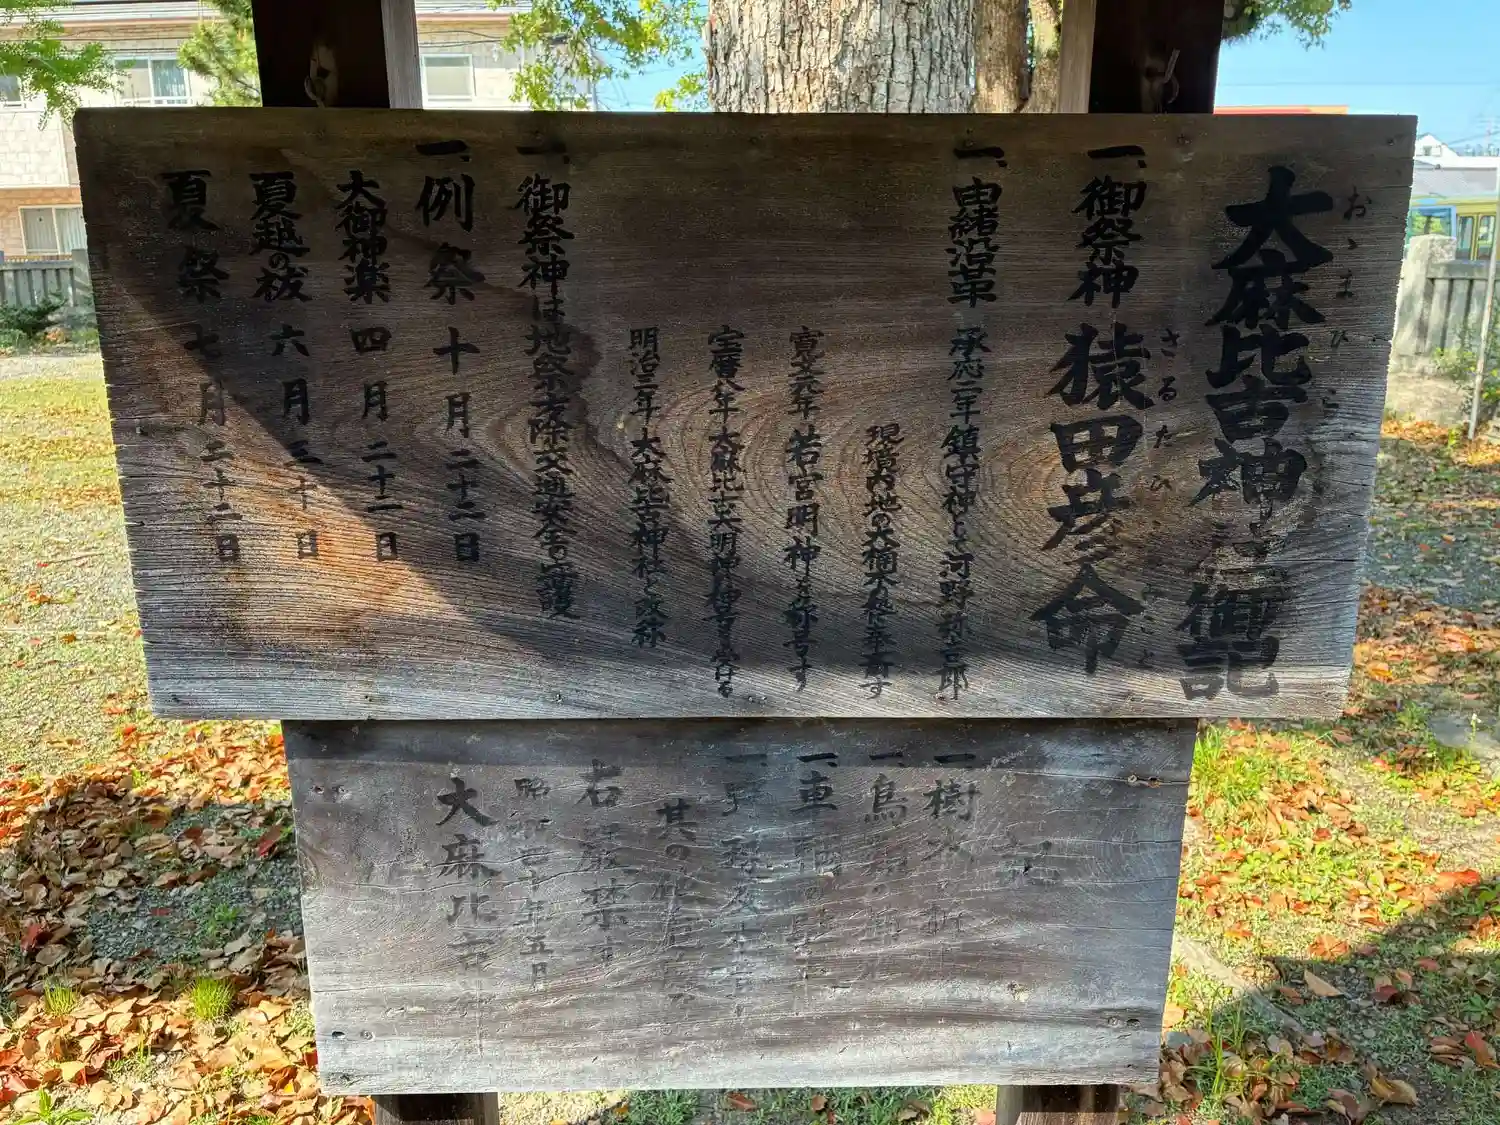 大麻比古神社御記
おゝまひこ
一、御祭神 猿田彦命
さるたひこ みこと
一、由緒沿革 承応二年鎮守神として河野弥吉郎
現境内地の大楠木の根に奉斎す
寛文六年若宮明神と称号す
宝暦八年大麻比古大明神の神号を受ける
明治三年大麻比古神社と改称
一、御祭神は地祭去除交通安全の守護
一、例祭 十月二十二日
大御神楽 四月二十二日
夏越の祓 六月三十日
夏祭 七月二十二日
記
一、樹木を折
一、鳥類を捕
一、車輌の
一、野球及
其の他
右厳禁す
昭和四十年五月
大麻比古神